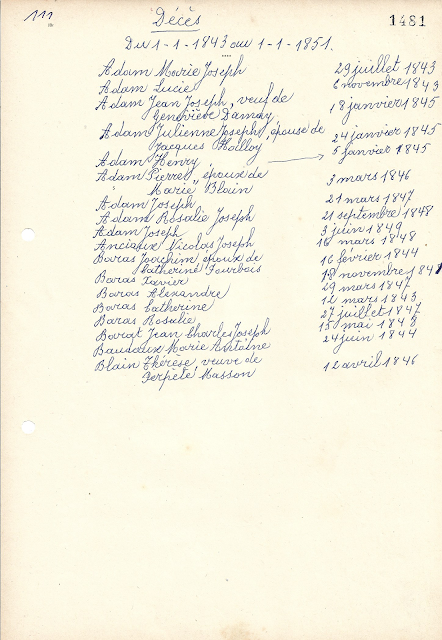 111
Décès
1481
Du 1-1-1843 au 1-1-1851.
Adam Marie Joseph 29 juillet 1843
Adam Lucie 6 novembre 1843
Adam Jean Joseph, veuf de
Geneviève Damay 18 janvier 1845
Adam Julienne Joseph, épouse de
Jacques Holloy 24 janvier 1845
Adam Henry 5 janvier 1845
Adam Pierre, époux de
Marie Blain 3 mars 1846
Adam Joseph 21 mars 1847
Adam Rosalie Joseph 21 septembre 1848
Adam Joseph 3 juin 1849
Anciaux Nicolas Joseph 16 mars 1848
Baras Joachim, époux de
Catherine Fourbois 16 février 1844
Baras Xavier 18 novembre 1841
Baras Alexandre 29 mars 1847
Baras Catherine 12 mars 1843
Baras Rosalie 27 juillet 1847
Barat Jean Charles Joseph 15 mai 1848
Baudaux Marie Antoine 24 juin 1844
Blain Thérèse, veuve de
Perpète Masson 12 avril 1846